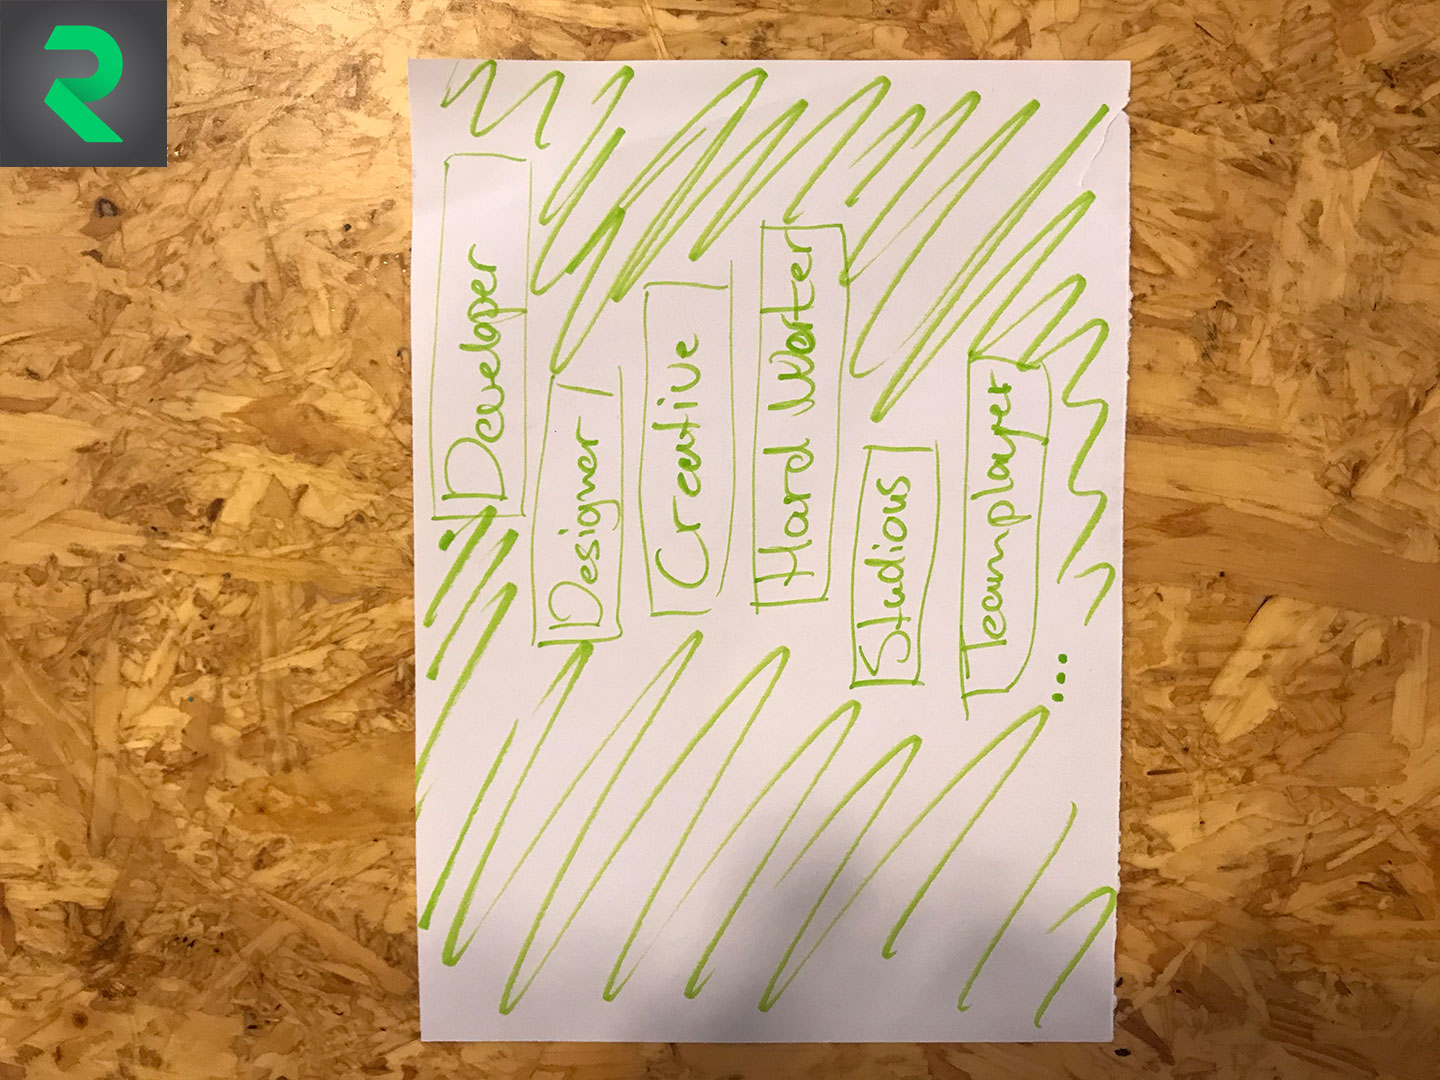 R
Developer
Designer
Creative
Hard Worker
Studious
Teamplayer
...